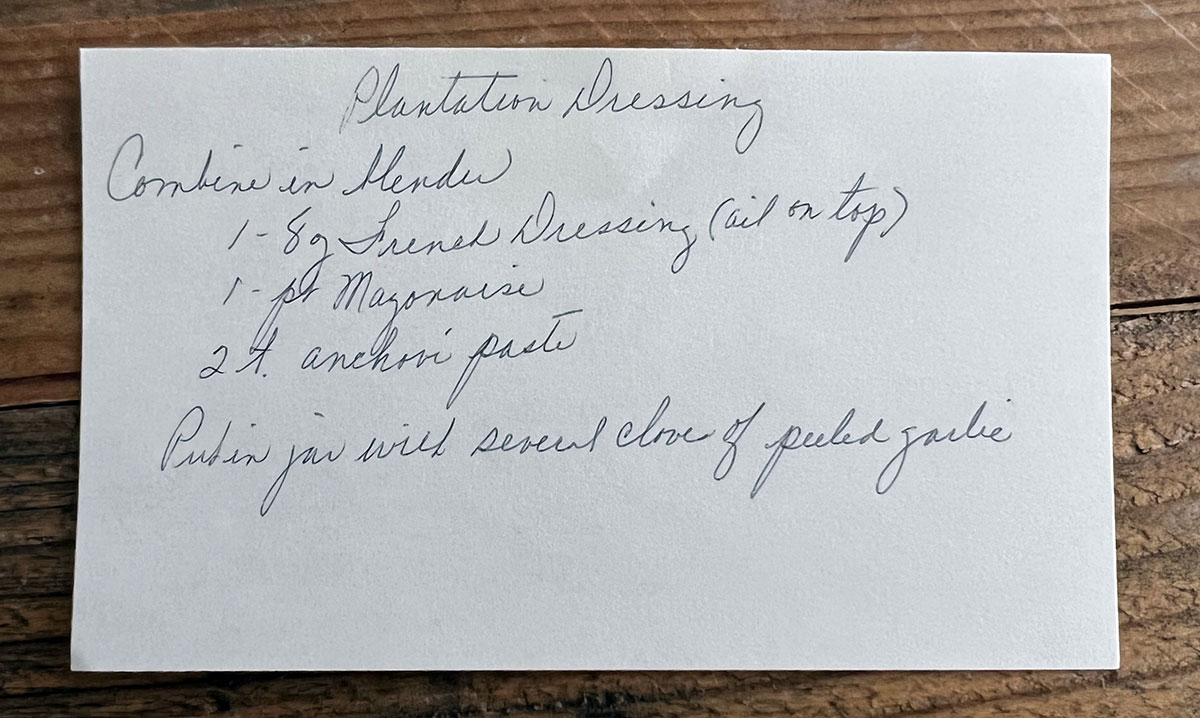 Plantation Dressing
Combine in blender
1 - 8 oz French Dressing (oil on top)
1 - pt Mayonaise
2 t. anchovi paste
Put in jar with several clove of peeled garlic